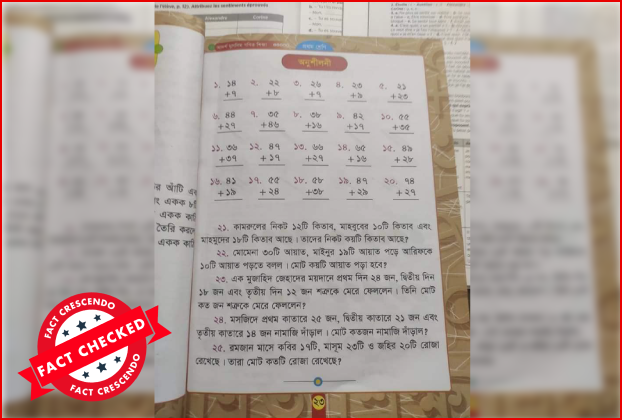 প্রথম শ্রেণি
অনুশীলনী
১. ১৪ ২. ২২ ৩. ২৬ ৪. ২৩ ৫. ২১
+৭ +৮ +৭ +৯ +২৩
৬. ৪৪ ৭. ৩৫ ৮. ৩৮ ৯. ৪২ ১০. ৫৫
+২৭ +৪৬ +১৬ +১৭ +৩৫
১১. ৩৬ ১২. ৪৭ ১৩. ৬৬ ১৪. ৬৫ ১৫. ৪৯
+৩৭ +১৭ +২৭ +১৬ +২৮
১৬. ৪১ ১৭. ৫৫ ১৮. ৫৮ ১৯. ৪৭ ২০. ৭৪
+১৯ +২৪ +৩৮ +২৯ +২৭
২১. কামরুলের নিকট ১২টি কিতাব, মাহবুবের ১০টি কিতাব এবং
মাহমুদের ১৮টি কিতাব আছে। তাদের নিকট কয়টি কিতাব আছে?
২২. মোমেনা ৩০টি আয়াত, মাইনুর ১৯টি আয়াত পড়ে আরিফকে
১০টি আয়াত পড়তে বলল। মোট কয়টি আয়াত পড়া হবে?
২৩. এক মুজাহিদ জেহাদের ময়দানে প্রথম দিন ২৪ জন, দ্বিতীয় দিন
১৮ জন এবং তৃতীয় দিন ১২ জন শত্রুকে মেরে ফেললেন। তিনি মোট
কত জন শত্রুকে মেরে ফেললেন?
২৪. মসজিদে প্রথম কাতারে ২৫ জন, দ্বিতীয় কাতারে ২১ জন এবং
তৃতীয় কাতারে ১৪ জন নামাজি দাঁড়াল। মোট কতজন নামাজি দাঁড়াল?
২৫. রমজান মাসে কবির ১৭টি, মাসুম ২৩টি ও জহির ২০টি রোজা
রেখেছে। তারা মোট কতটি রোজা রেখেছে?
২৩
র আঁটি এব
একক কা
তৈরি কর
একক কা
FACT CRESCENDO
FACT CHECKED
FACT CRESCENDO